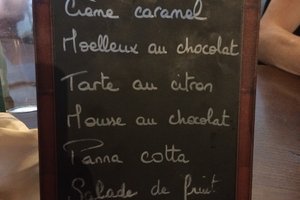 Crème caramel
Moelleux au chocolat
Tarte au citron
Mousse au chocolat
Panna cotta
Salade de fruit